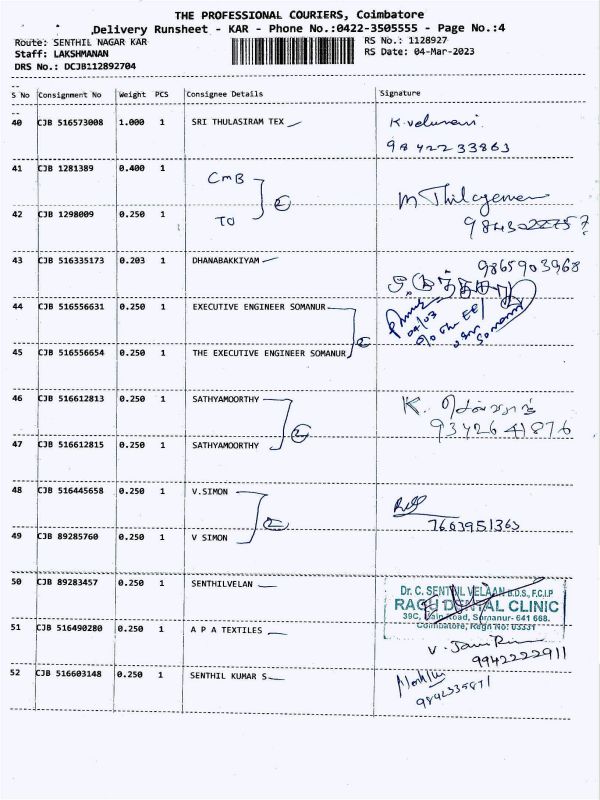 THE PROFESSIONAL COURIERS, Coimbatore
Delivery Runsheet - KAR - Phone No.:0422-3505555 - Page No.:4
Route: SENTHIL NAGAR KAR
RS No.: 1128927
Staff: LAKSHMANAN
RS Date: 04-Mar-2023
DRS No.: DCJB112892704
S No Consignment No Weight PCS Consignee Details Signature
40 CJB 516573008 1.000 1 SRI THULASIRAM TEX K. velumani
9842233863
41 CJB 1281389 0.400 1 CMB
M Thilageman
42 CJB 1298009 0.250 1 TO
43 CJB 516335173 0.203 1 DHANABAKKIYAM 9865903968
44 CJB 516556631 0.250 1 EXECUTIVE ENGINEER SOMANUR
04/03
O/o the EE/
Somanur
45 CJB 516556654 0.250 1 THE EXECUTIVE ENGINEER SOMANUR 2
46 CJB 516612813 0.250 1 SATHYAMOORTHY K.
9342641876
2
47 CJB 516612815 0.250 1 SATHYAMOORTHY
48 CJB 516445658 0.250 1 V.SIMON
2 7663951363
49 CJB 89285760 0.250 1 V SIMON
50 CJB 89283457 0.250 1 SENTHILVELAN
Dr. C. SENTHIL VELAAN B.D.S., F.C.I.P
RAGH DENTAL CLINIC
39C, Main Road, Somanur- 641 668.
Coimbatore, Regn No: 03331
51 CJB 516490280 0.250 1 A P A TEXTILES
9942222911
52 CJB 516603148 0.250 1 SENTHIL KUMAR S